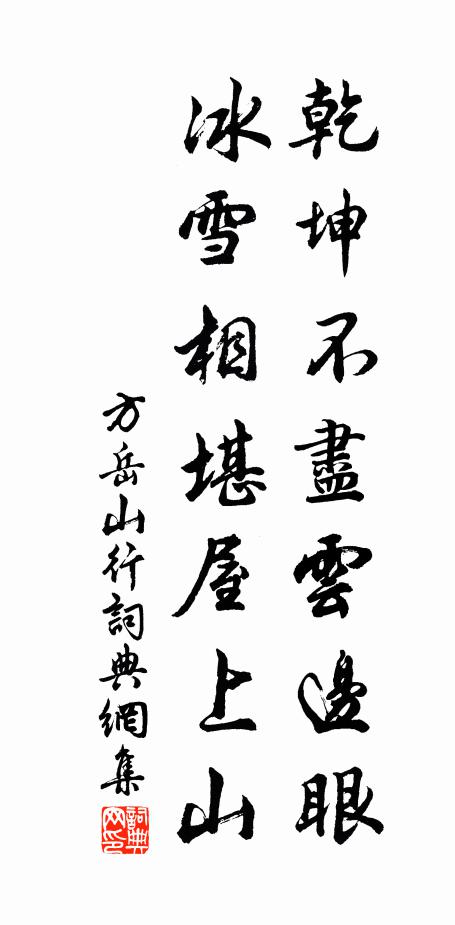 乾坤不盡雲邊眼
冰雪相堪屋上山
方岳山行詞典網集
詞典網印